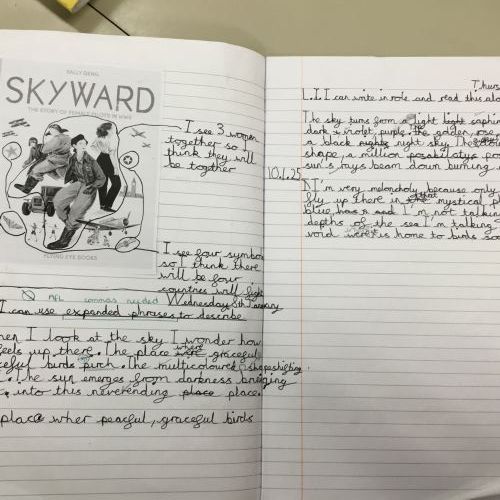 SALLY DENG
SKYWARD
THE STORY OF FEMALE PILOTS IN WW2
FLYING EYE BOOKS
I see 3 women
together so I
think they will
be together
I see four symbols
so I think there
will be four
countries will fight
commas needed
Wednesday 8th January
I can use expanded phrases to describe
when I look at the sky I wonder how
feels up there. The place where graceful
birds. The multicoloured, shapeshifting
. The sun emerges from darkness bringing
into this neverending place place.
place wher peacful, graceful birds
Thurs
L.I. I can write in role and read this alo
The sky turns from a light light saphir
dark violet, purple. The golden, rose
a black night sky. The
shape, a million
sun's rays beam down burning
10.1.25
I'm very melancholy because only
fly up there in that mystical pl
blue. I'm not talking
depths of the sea I'm talking
void were is home to birds so